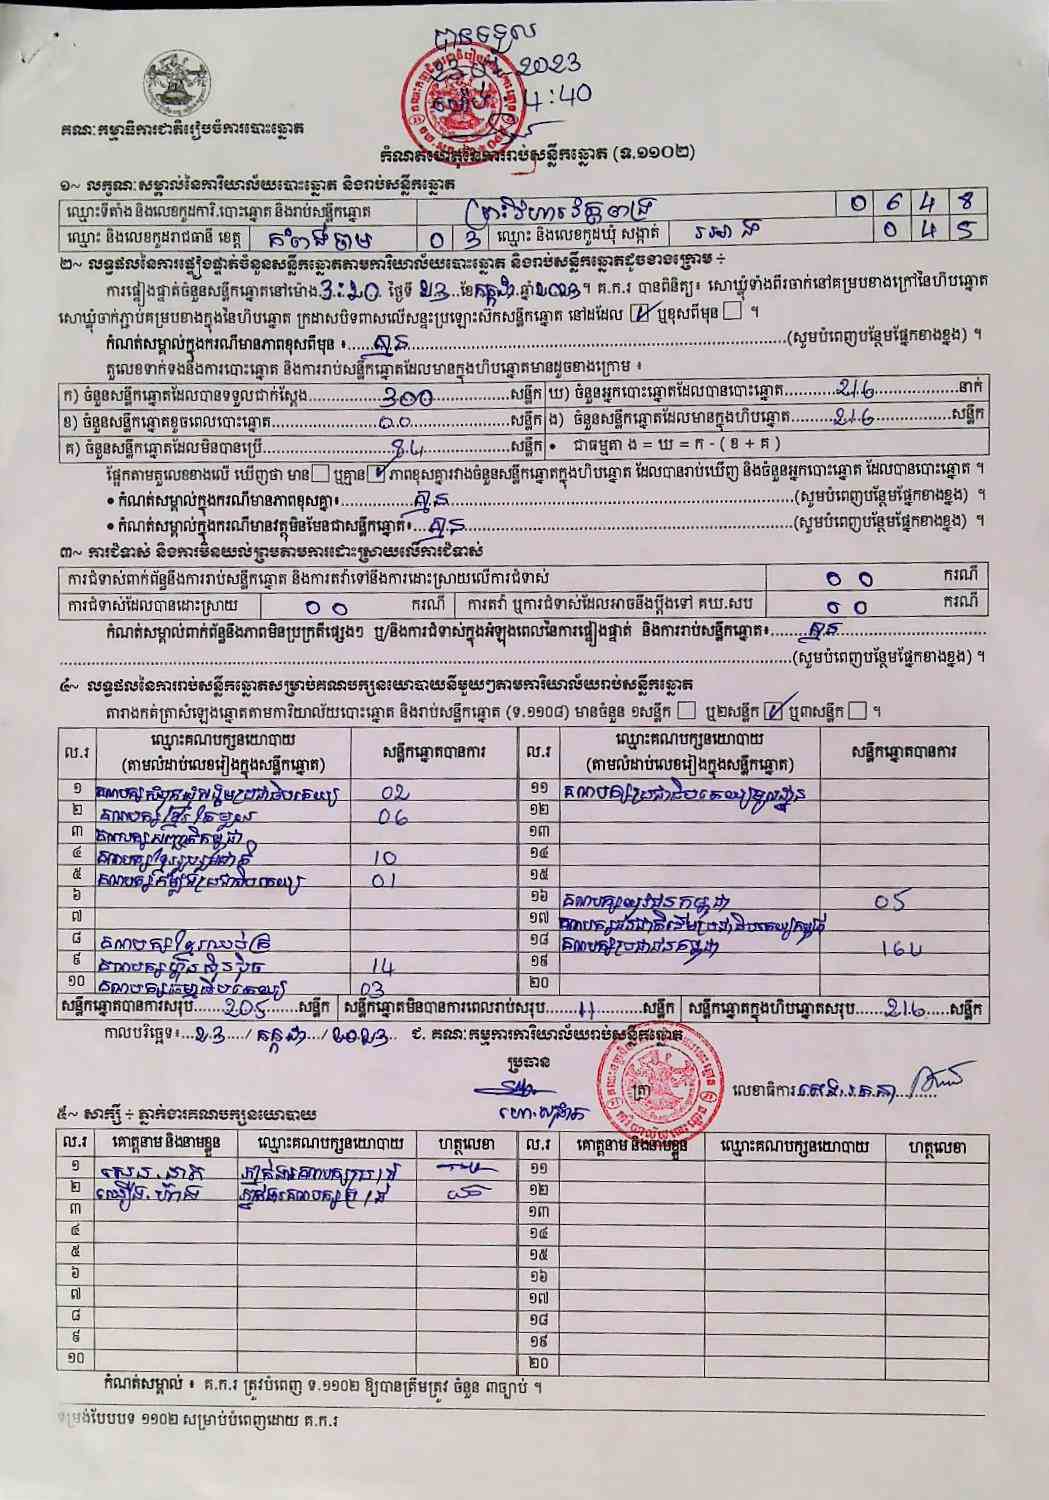 បានទទួល
2023
4:40
គណៈកម្មាធិការជាតិរៀបចំការបោះឆ្នោត
កំណត់ហេតុនៃការរាប់សន្លឹកឆ្នោត (ទ.១១០២)
១~ លក្ខណៈសម្គាល់នៃការិយាល័យបោះឆ្នោត និងរាប់សន្លឹកឆ្នោត
ឈ្មោះទីតាំង និងលេខកូដការិ.បោះឆ្នោត និងរាប់សន្លឹកឆ្នោត 0 6 4 8
ឈ្មោះ និងលេខកូដរាជធានី ខេត្ត កំពង់ចាម 0 3 ឈ្មោះ និងលេខកូដឃុំ សង្កាត់ រអាង 0 4 5
២~ លទ្ធផលនៃការផ្ទៀងផ្ទាត់ចំនួនសន្លឹកឆ្នោតតាមការិយាល័យបោះឆ្នោត និងរាប់សន្លឹកឆ្នោតដូចខាងក្រោម ÷
ការផ្ទៀងផ្ទាត់ចំនួនសន្លឹកឆ្នោតនៅម៉ោង 3:20 ថ្ងៃទី 23 ខែ កក្កដា ឆ្នាំ 2023 ។ គ.ក.រ បានពិនិត្យ៖ សោឃ្លុំទាំងពីរចាក់នៅគម្របខាងក្រៅនៃហិបឆ្នោត
សោឃ្លុំចាក់ភ្ជាប់គម្របខាងក្នុងនៃហិបឆ្នោត ក្រដាសបិទពាសលើសន្ទះប្រឡោះស៊កសន្លឹកឆ្នោត នៅដដែល ☑ ឬខុសពីមុន ☐ ។
កំណត់សម្គាល់ក្នុងករណីមានភាពខុសពីមុន ៖ គ្មាន (សូមបំពេញបន្ថែមផ្នែកខាងខ្នង) ។
តួលេខទាក់ទងនឹងការបោះឆ្នោត និងការរាប់សន្លឹកឆ្នោតដែលមានក្នុងហិបឆ្នោតមានដូចខាងក្រោម ៖
ក) ចំនួនសន្លឹកឆ្នោតដែលបានទទួលជាក់ស្តែង 300 សន្លឹក ឃ) ចំនួនអ្នកបោះឆ្នោតដែលបានបោះឆ្នោត 216 នាក់
ខ) ចំនួនសន្លឹកឆ្នោតខូចពេលបោះឆ្នោត 00 សន្លឹក ង) ចំនួនសន្លឹកឆ្នោតដែលមានក្នុងហិបឆ្នោត 216 សន្លឹក
គ) ចំនួនសន្លឹកឆ្នោតដែលមិនបានប្រើ 84 សន្លឹក • ជាធម្មតា ង = ឃ = ក - ( ខ + គ )
ផ្អែកតាមតួលេខខាងលើ ឃើញថា មាន ☐ ឬគ្មាន ☑ ភាពខុសគ្នារវាងចំនួនសន្លឹកឆ្នោតក្នុងហិបឆ្នោត ដែលបានរាប់ឃើញ និងចំនួនអ្នកបោះឆ្នោត ដែលបានបោះឆ្នោត ។
• កំណត់សម្គាល់ក្នុងករណីមានភាពខុសគ្នា៖ គ្មាន (សូមបំពេញបន្ថែមផ្នែកខាងខ្នង) ។
• កំណត់សម្គាល់ក្នុងករណីមានវត្ថុមិនមែនជាសន្លឹកឆ្នោត៖ គ្មាន (សូមបំពេញបន្ថែមផ្នែកខាងខ្នង) ។
៣~ ការជំទាស់ និងការមិនយល់ព្រមតាមការដោះស្រាយលើការជំទាស់
ការជំទាស់ពាក់ព័ន្ធនឹងការរាប់សន្លឹកឆ្នោត និងការតវ៉ាទៅនឹងការដោះស្រាយលើការជំទាស់ 0 0 ករណី
ការជំទាស់ដែលបានដោះស្រាយ 0 0 ករណី ការតវ៉ា ឬការជំទាស់ដែលអាចនឹងប្តឹងទៅ គឃ.សប 0 0 ករណី
កំណត់សម្គាល់ពាក់ព័ន្ធនឹងភាពមិនប្រក្រតីផ្សេងៗ ឬ/និងការជំទាស់ក្នុងអំឡុងពេលនៃការផ្ទៀងផ្ទាត់ និងការរាប់សន្លឹកឆ្នោត៖ គ្មាន
(សូមបំពេញបន្ថែមផ្នែកខាងខ្នង) ។
៤~ លទ្ធផលនៃការរាប់សន្លឹកឆ្នោតសម្រាប់គណបក្សនយោបាយនីមួយៗតាមការិយាល័យរាប់សន្លឹកឆ្នោត
តារាងកត់ត្រាសំឡេងឆ្នោតតាមការិយាល័យបោះឆ្នោត និងរាប់សន្លឹកឆ្នោត (ទ.១១០៨) មានចំនួន ១សន្លឹក ☐ ឬ២សន្លឹក ☑ ឬ៣សន្លឹក ☐ ។
ល.រ ឈ្មោះគណបក្សនយោបាយ (តាមលំដាប់លេខរៀងក្នុងសន្លឹកឆ្នោត) សន្លឹកឆ្នោតបានការ ល.រ ឈ្មោះគណបក្សនយោបាយ (តាមលំដាប់លេខរៀងក្នុងសន្លឹកឆ្នោត) សន្លឹកឆ្នោតបានការ
១ គណបក្សសំបុកឃ្មុំសង្គមប្រជាធិបតេយ្យ 02 ១១ គណបក្សប្រជាធិបតេយ្យមូលដ្ឋាន
២ គណបក្សខ្មែររួបរួម 06 ១២
៣ គណបក្សសញ្ជាតិកម្ពុជា ១៣
៤ 10 ១៤
៥ គណបក្សកម្លាំងប្រជាធិបតេយ្យ 01 ១៥
៦ ១៦ គណបក្សយុវជនកម្ពុជា 05
៧ ១៧
៨ គណបក្សខ្មែរឈប់ក្រ ១៨ គណបក្សប្រជាជនកម្ពុជា 164
៩ គណបក្សហ្វ៊ុនស៊ិនប៉ិច 14 ១៩
១០ គណបក្សធម្មាធិបតេយ្យ 03 ២០
សន្លឹកឆ្នោតបានការសរុប 205 សន្លឹក សន្លឹកឆ្នោតមិនបានការពេលរាប់សរុប 11 សន្លឹក សន្លឹកឆ្នោតក្នុងហិបឆ្នោតសរុប 216 សន្លឹក
កាលបរិច្ឆេទ៖ 23 / កក្កដា / 2023 ជ. គណៈកម្មការការិយាល័យរាប់សន្លឹកឆ្នោត
ប្រធាន
ត្រា លេខាធិការ
៥~ សាក្សី ÷ ភ្នាក់ងារគណបក្សនយោបាយ
ល.រ គោត្តនាម និងនាមខ្លួន ឈ្មោះគណបក្សនយោបាយ ហត្ថលេខា ល.រ គោត្តនាម និងនាមខ្លួន ឈ្មោះគណបក្សនយោបាយ ហត្ថលេខា
១ ១១
២ ១២
៣ ១៣
៤ ១៤
៥ ១៥
៦ ១៦
៧ ១៧
៨ ១៨
៩ ១៩
១០ ២០
កំណត់សម្គាល់ ៖ គ.ក.រ ត្រូវបំពេញ ទ.១១០២ ឱ្យបានត្រឹមត្រូវ ចំនួន ៣ច្បាប់ ។
ទម្រង់បែបបទ ១១០២ សម្រាប់បំពេញដោយ គ.ក.រ